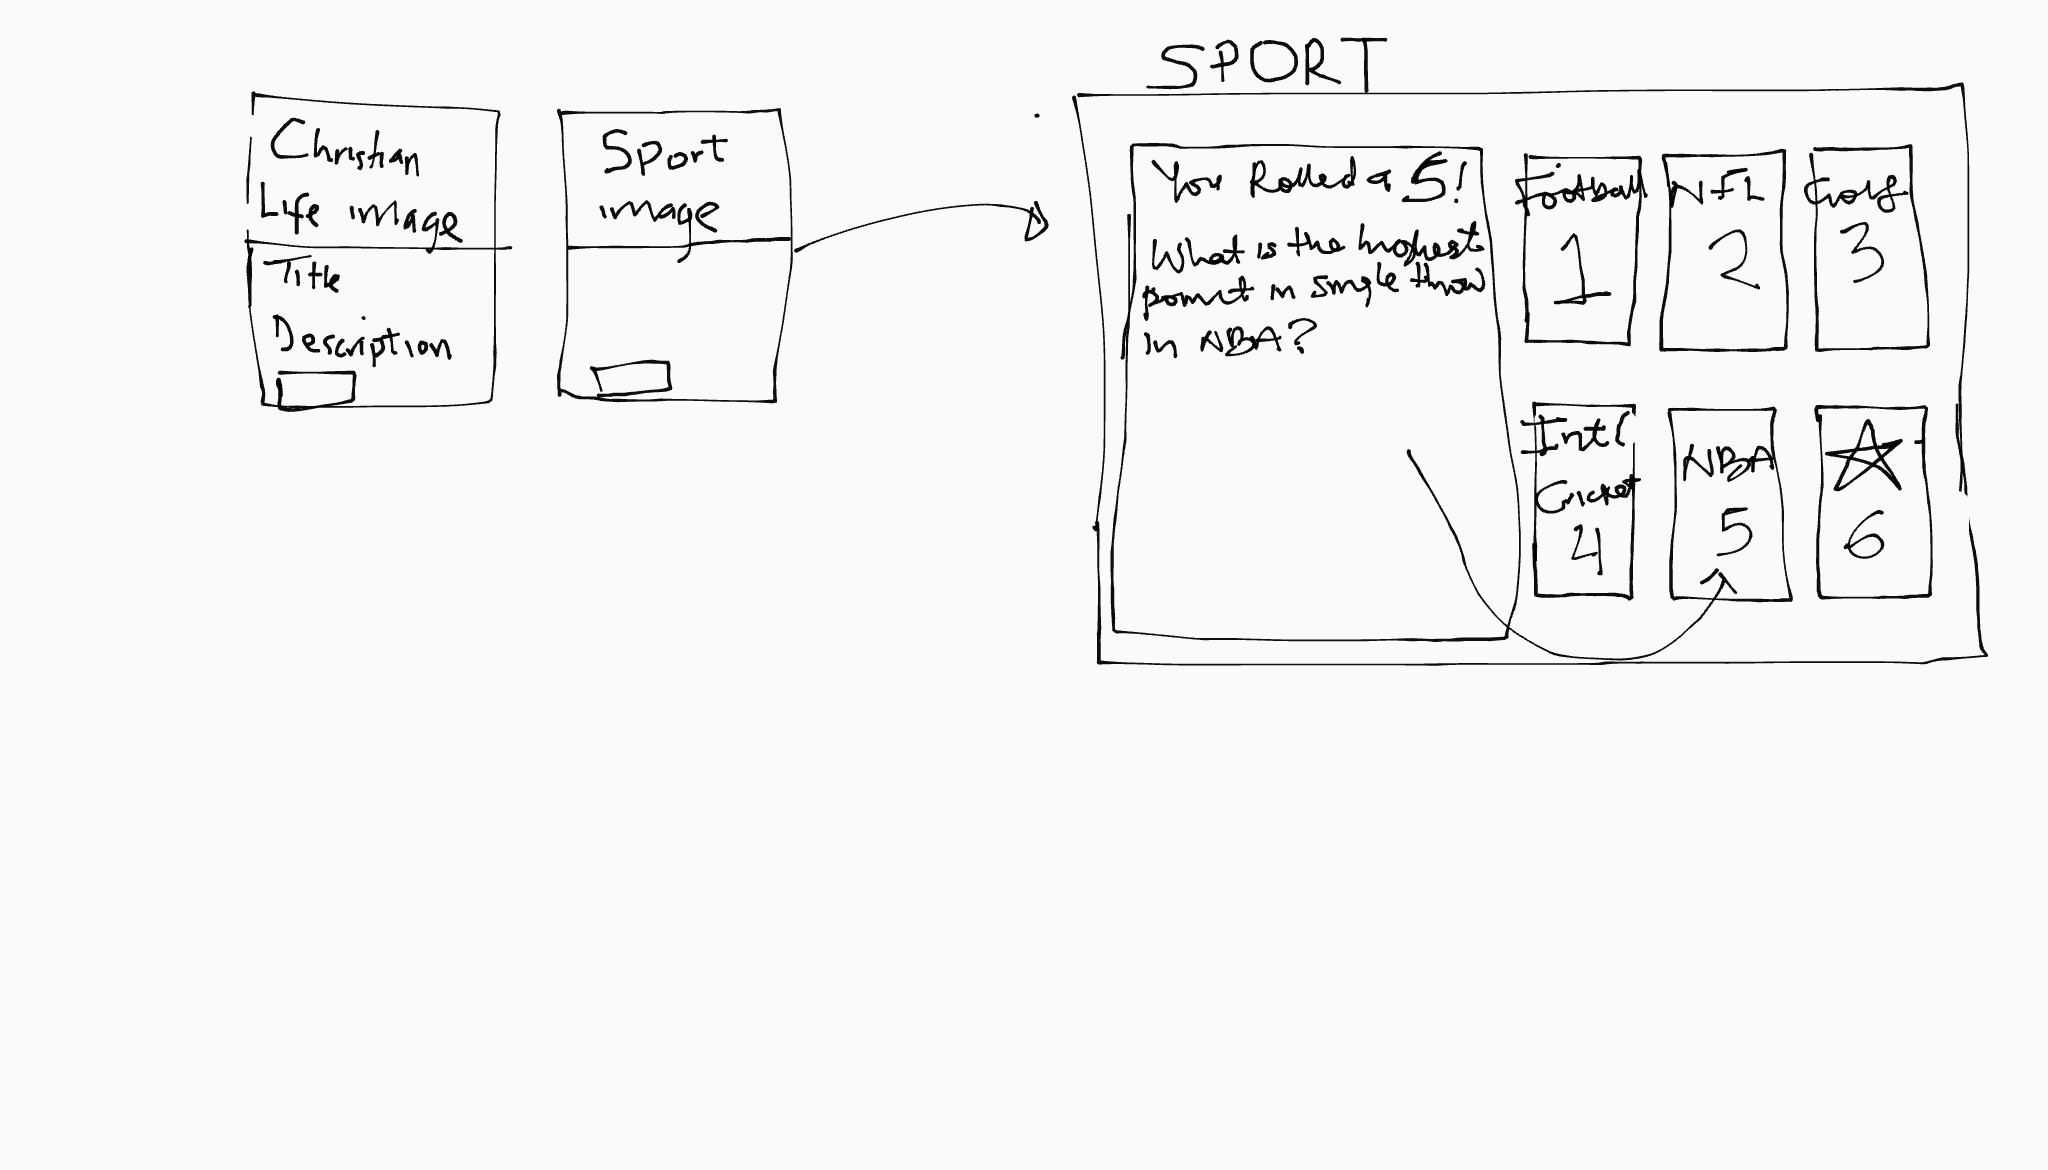 SPORT
Christian
Life image
Title
Description
Sport
image
You Rolled a 5!
What is the highest
point in single throw
in NBA?
Football
1
NFL
2
Golf
3
Intl
Cricket
4
NBA
5
6